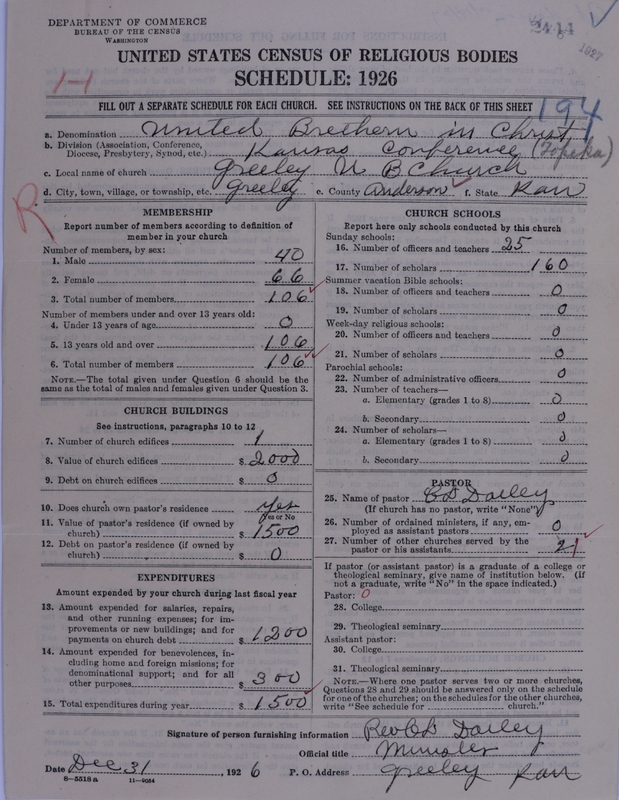 DEPARTMENT OF COMMERCE
BUREAU OF THE CENSUS
WASHINGTON
1927
UNITED STATES CENSUS OF RELIGIOUS BODIES
SCHEDULE: 1926
FILL OUT A SEPARATE SCHEDULE FOR EACH CHURCH. SEE INSTRUCTIONS ON THE BACK OF THIS SHEET
194
a. Denomination United Brethern in Christ
b. Division (Association, Conference, Diocese, Presbytery, Synod, etc.) Kansas Conference (Topeka)
c. Local name of church Greeley U B Church
d. City, town, village, or township, etc. Greeley e. County Anderson f. State Kan
R
MEMBERSHIP
Report number of members according to definition of
member in your church
Number of members, by sex:
1. Male 40
2. Female 66
3. Total number of members 106
Number of members under and over 13 years old:
4. Under 13 years of age 0
5. 13 years old and over 106
6. Total number of members 106
NOTE.—The total given under Question 6 should be the
same as the total of males and females given under Question 3.
CHURCH BUILDINGS
See instructions, paragraphs 10 to 12
7. Number of church edifices 1
8. Value of church edifices $ 2000
9. Debt on church edifices $ 0
10. Does church own pastor's residence yes
Yes or No
11. Value of pastor's residence (if owned by
church) $ 1500
12. Debt on pastor's residence (if owned by
church) $ 0
EXPENDITURES
Amount expended by your church during last fiscal year
13. Amount expended for salaries, repairs,
and other running expenses; for im-
provements or new buildings; and for
payments on church debt $ 1200
14. Amount expended for benevolences, in-
cluding home and foreign missions; for
denominational support; and for all
other purposes $ 300
15. Total expenditures during year $ 1500
CHURCH SCHOOLS
Report here only schools conducted by this church
Sunday schools:
16. Number of officers and teachers 25
17. Number of scholars 160
Summer vacation Bible schools:
18. Number of officers and teachers 0
19. Number of scholars 0
Week-day religious schools:
20. Number of officers and teachers 0
21. Number of scholars 0
Parochial schools:
22. Number of administrative officers 0
23. Number of teachers—
a. Elementary (grades 1 to 8) 0
b. Secondary 0
24. Number of scholars—
a. Elementary (grades 1 to 8) 0
b. Secondary 0
PASTOR
25. Name of pastor Dailey
(If church has no pastor, write "None")
26. Number of ordained ministers, if any, em-
ployed as assistant pastors 0
27. Number of other churches served by the
pastor or his assistants
If pastor (or assistant pastor) is a graduate of a college or
theological seminary, give name of institution below. (If
not a graduate, write "No" in the space indicated.)
Pastor: 0
28. College
29. Theological seminary
Assistant pastor:
30. College
31. Theological seminary
NOTE.—Where one pastor serves two or more churches,
Questions 28 and 29 should be answered only on the schedule
for one of the churches; on the schedules for the other churches,
write "See schedule for church."
Signature of person furnishing information Rev Dailey
Official title Minister
Date Dec 31, 1926 P. O. Address Greeley Kan
8-5518a 11-9054